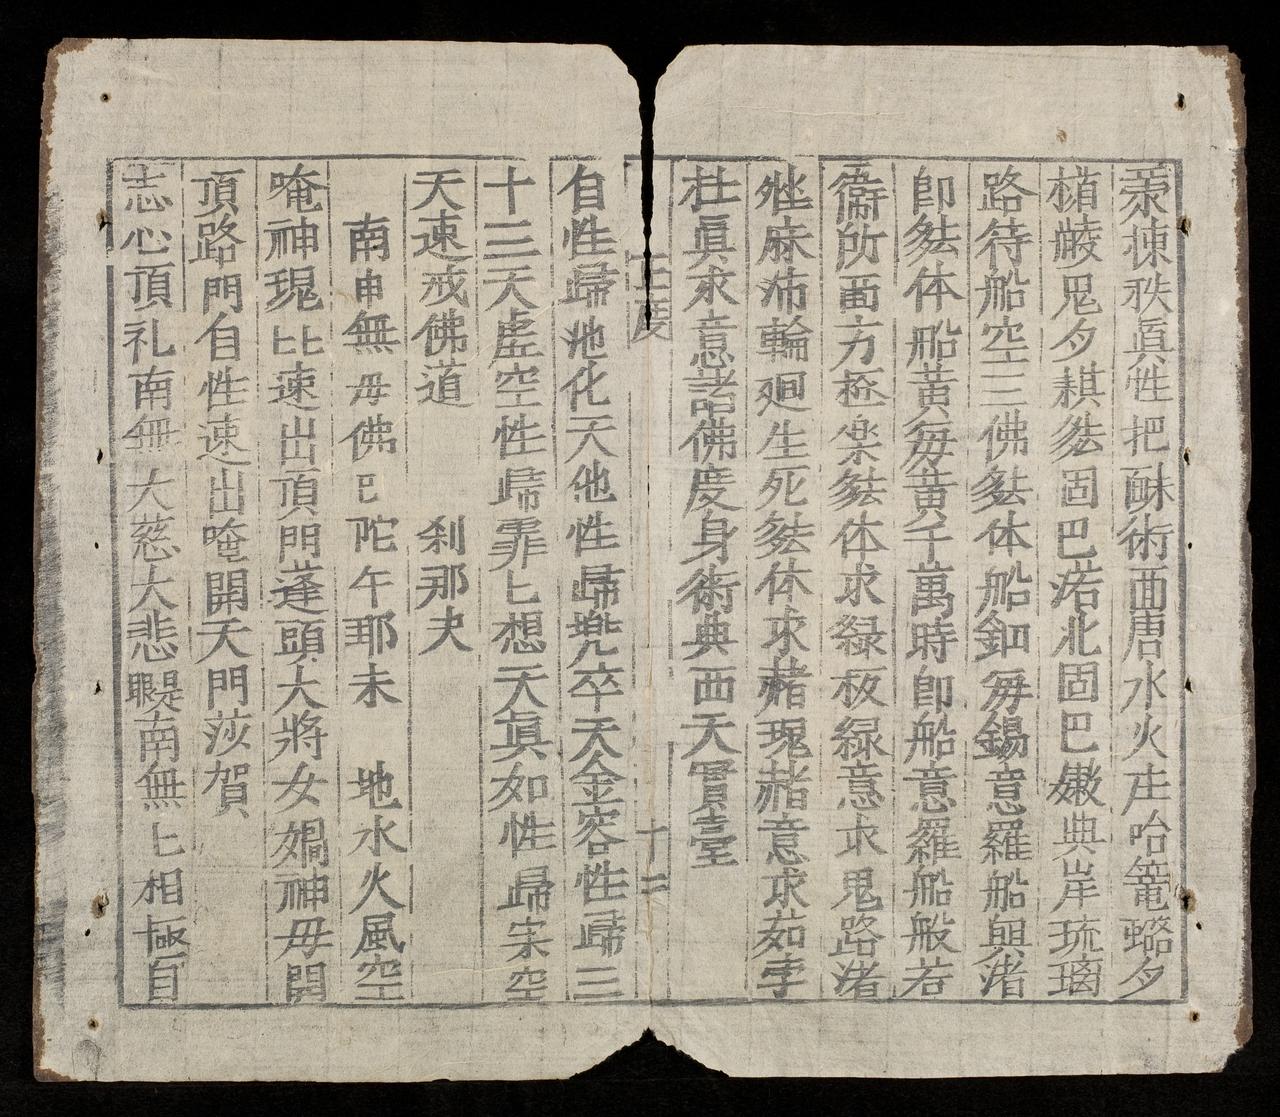 棟秩眞性把酥術面唐水火庄哈篭蛒夕
鬼夕棋𠫤固巴渃北固巴嫩典岸琉璃
路待船空三佛𠫤体船鈤毎錫意羅船與渚
卽𠫤体船黄每黄千萬時卽船意羅船般若
所靣方極楽𠫤体求緑板緑意求鬼路渚
麻沛輪廻生死𠫤体求赭瑰赭意求茹孛
眞求意佛度身術典西天寳臺
正度
十二
自性歸池化天他性歸兠卒天金容性歸三
十三天虛空性歸霏匕想天眞如性歸宋空
天速戒佛道 刹那夬
南申無毋佛巳陀午耶未 地水火風空
唵神現比速出頂門蓬頭大將女嫺神毋開
頂路門自性速出唵開天門莎賀
志心頂礼南無大慈大悲南無匕相極自